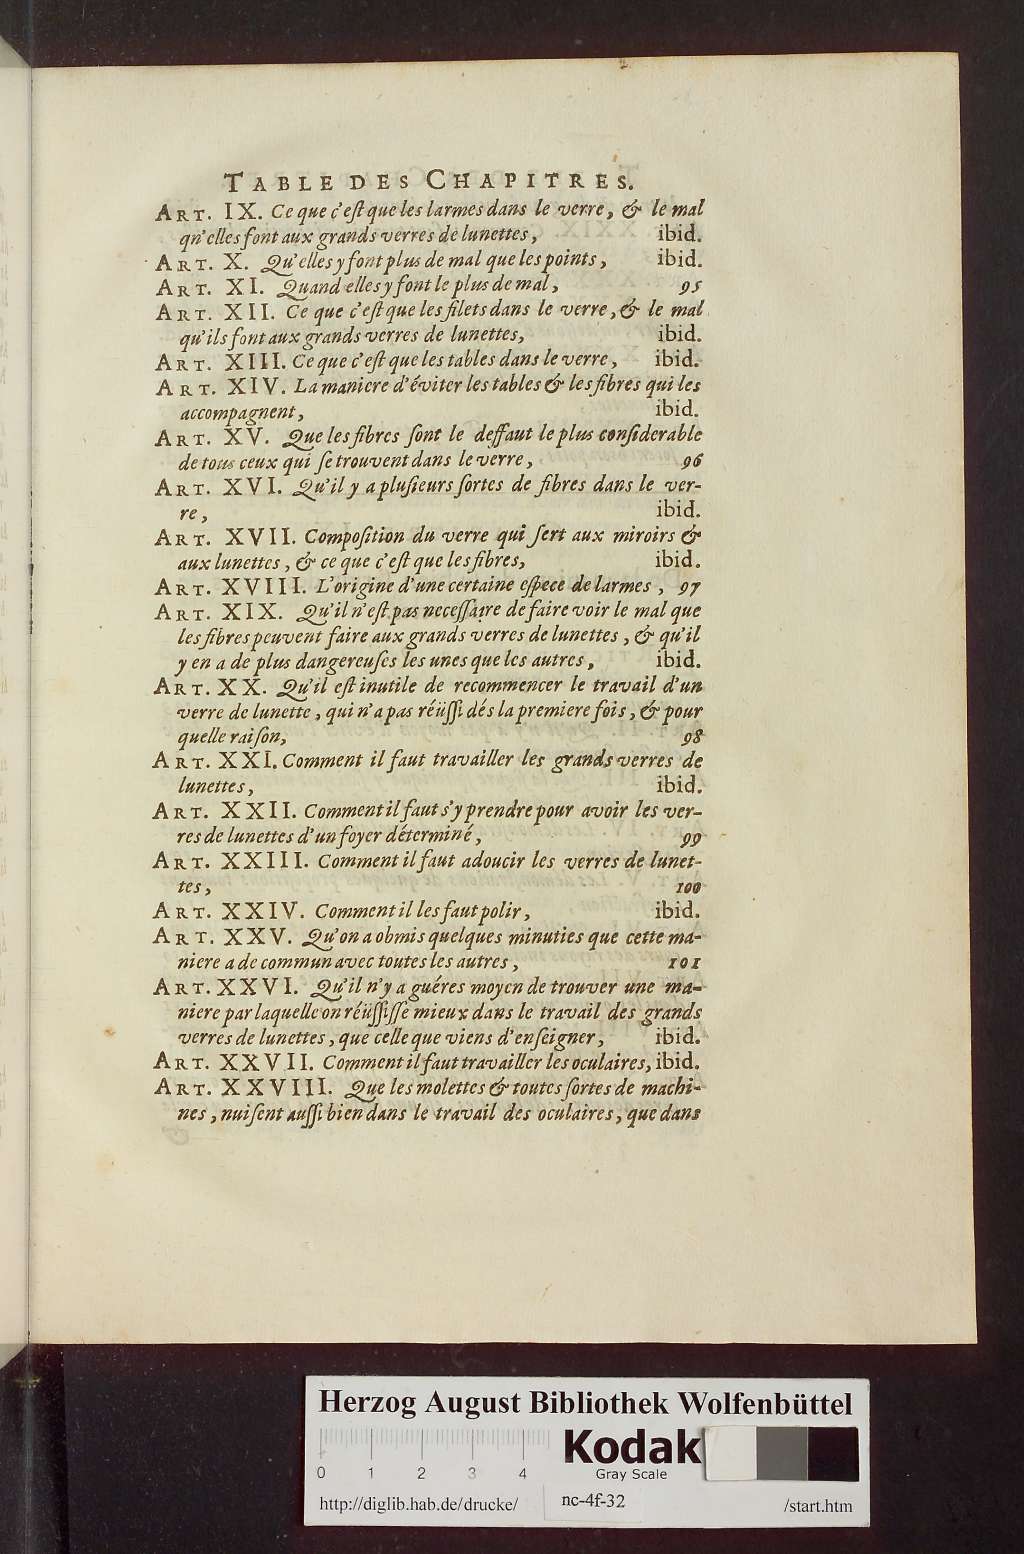 TABLE DES CHAPITRES.
ART. IX. Ce que c'eſt que les larmes dans le verre, & le mal
qn'elles font aux grands verres de lunettes, ibid.
ART. X. Qu'elles y font plus de mal que les points, ibid.
ART. XI. Quand elles y font le plus de mal, 95
ART. XII. Ce que c'eſt que les filets dans le verre, & le mal
qu'ils font aux grands verres de lunettes, ibid.
ART. XIII. Ce que c'eſt que les tables dans le verre, ibid.
ART. XIV. La maniere d'éviter les tables & les fibres qui les
accompagnent, ibid.
ART. XV. Que les fibres ſont le deffaut le plus conſiderable
de tous ceux qui ſe trouvent dans le verre, 96
ART. XVI. Qu'il y a pluſieurs ſortes de fibres dans le ver-
re, ibid.
ART. XVII. Compoſition du verre qui ſert aux miroirs &
aux lunettes, & ce que c'eſt que les fibres, ibid.
ART. XVIII. L'origine d'une certaine eſpece de larmes, 97
ART. XIX. Qu'il n'eſt pas neceſſaire de faire voir le mal que
les fibres peuvent faire aux grands verres de lunettes, & qu'il
y en a de plus dangereuſes les unes que les autres, ibid.
ART. XX. Qu'il eſt inutile de recommencer le travail d'un
verre de lunette, qui n'a pas réüſſi dés la premiere fois, & pour
quelle raiſon, 98
ART. XXI. Comment il faut travailler les grands verres de
lunettes, ibid.
ART. XXII. Comment il faut s'y prendre pour avoir les ver-
res de lunettes d'un foyer déterminé, 99
ART. XXIII. Comment il faut adoucir les verres de lunet-
tes, 100
ART. XXIV. Comment il les faut polir, ibid.
ART. XXV. Qu'on a obmis quelques minuties que cette ma-
niere a de commun avec toutes les autres, 101
ART. XXVI. Qu'il n'y a guéres moyen de trouver une ma-
niere par laquelle on réüſſiſſe mieux dans le travail des grands
verres de lunettes, que celle que viens d'enſeigner, ibid.
ART. XXVII. Comment il faut travailler les oculaires, ibid.
ART. XXVIII. Que les molettes & toutes ſortes de machi-
nes, nuiſent auſſi bien dans le travail des oculaires, que dans
Herzog August Bibliothek Wolfenbüttel
0 1 2 3 4
Kodak
Gray Scale
http://diglib.hab.de/drucke/ nc-4f-32 /start.htm